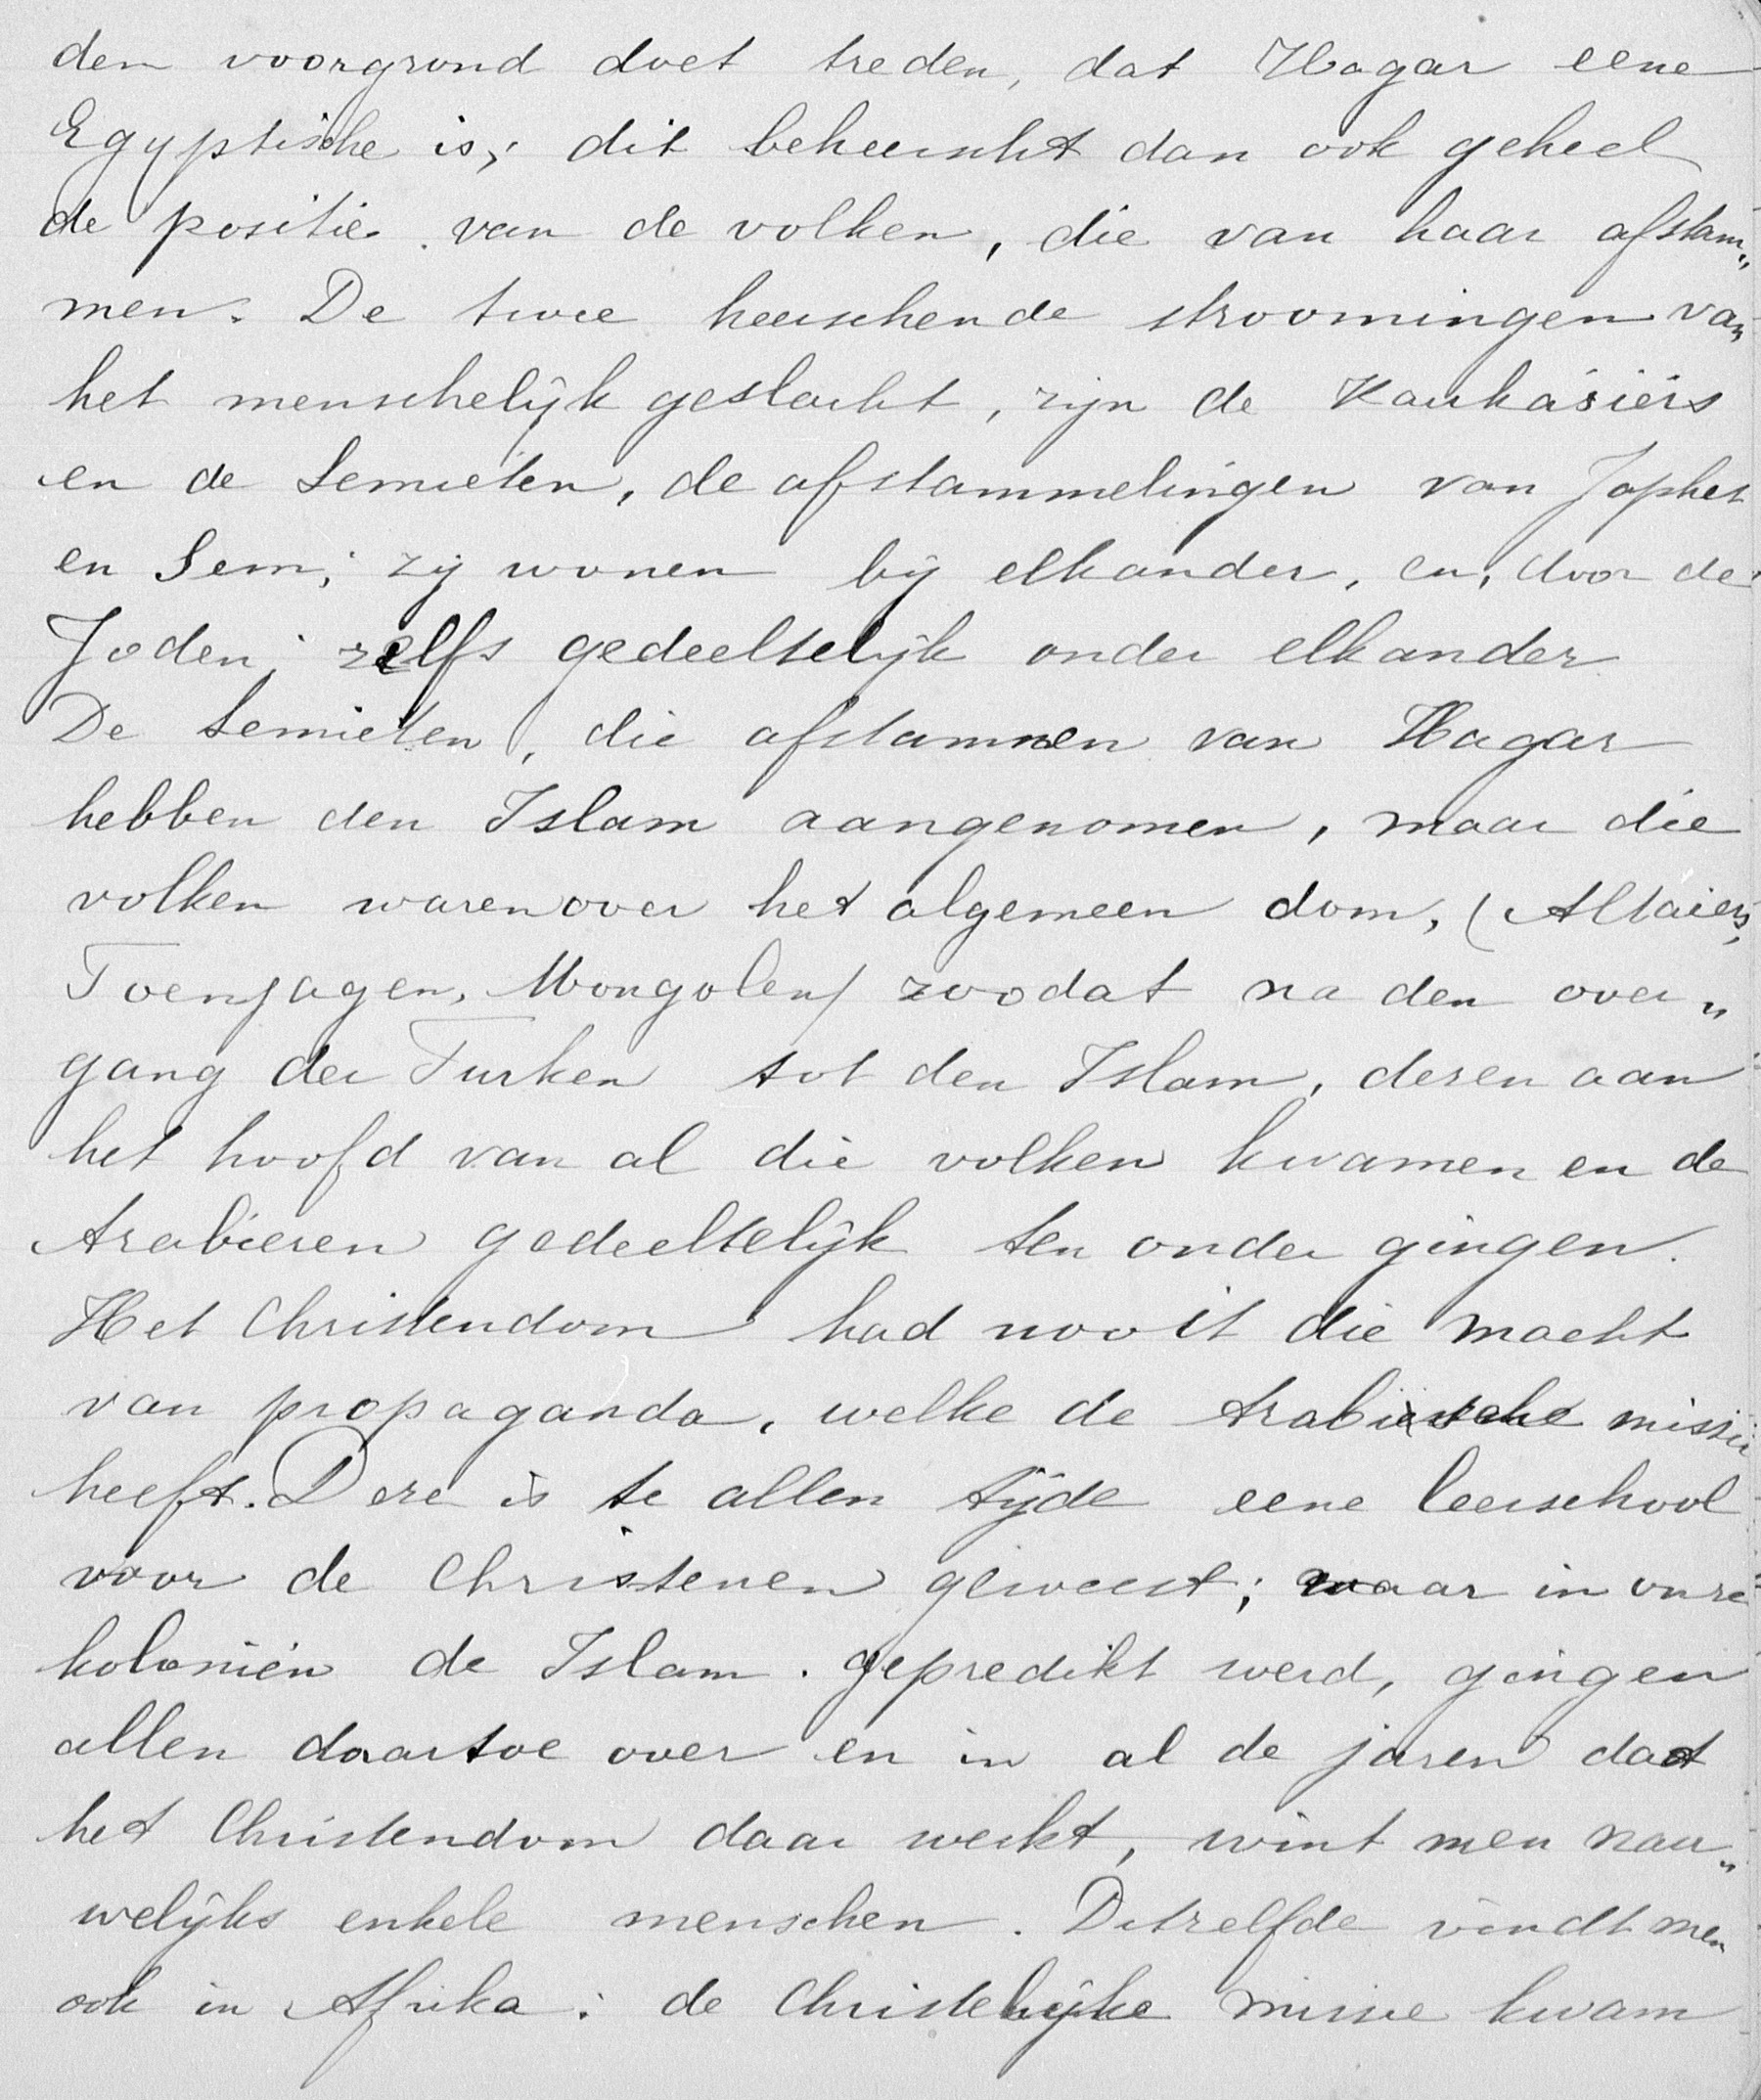 den voorgrond doet treden, dat Hagar eene
Egyptische is; dit beheerscht dan ook geheel
de positie van de volken, die van haar afstam„
men. De twee heerschende stroomingen van
het menschelijk geslacht, zijn de Kaukasiërs
en de Semieten, de afstammelingen van Japhet
en Sem; zij wonen bij elkander, en, door de
Joden, zelfs gedeeltelijk onder elkander
De Semieten, die afstammen van Hagar
hebben den Islam aangenomen, maar die
volken waren over het algemeen dom, (Altaiers,
Toenjagen, Mongolen) zoodat na den over„
gang der Turken tot den Islam, dezen aan
het hoofd van al die volken kwamen en de
Arabieren gedeeltelijk ten onder gingen.
Het Christendom had nooit die macht
van propaganda, welke de Arabische missie
heeft. Deze is te allen tijde eene leerschool
voor de Christenen geweest; waar in onze
koloniën de Islam gepredikt werd, gingen
allen daartoe over en in al de jaren dat
het Christendom daar werkt, wint men nau„
welijks enkele menschen. Ditzelfde vindt men
ook in Afrika: de Christelijke missie kwam